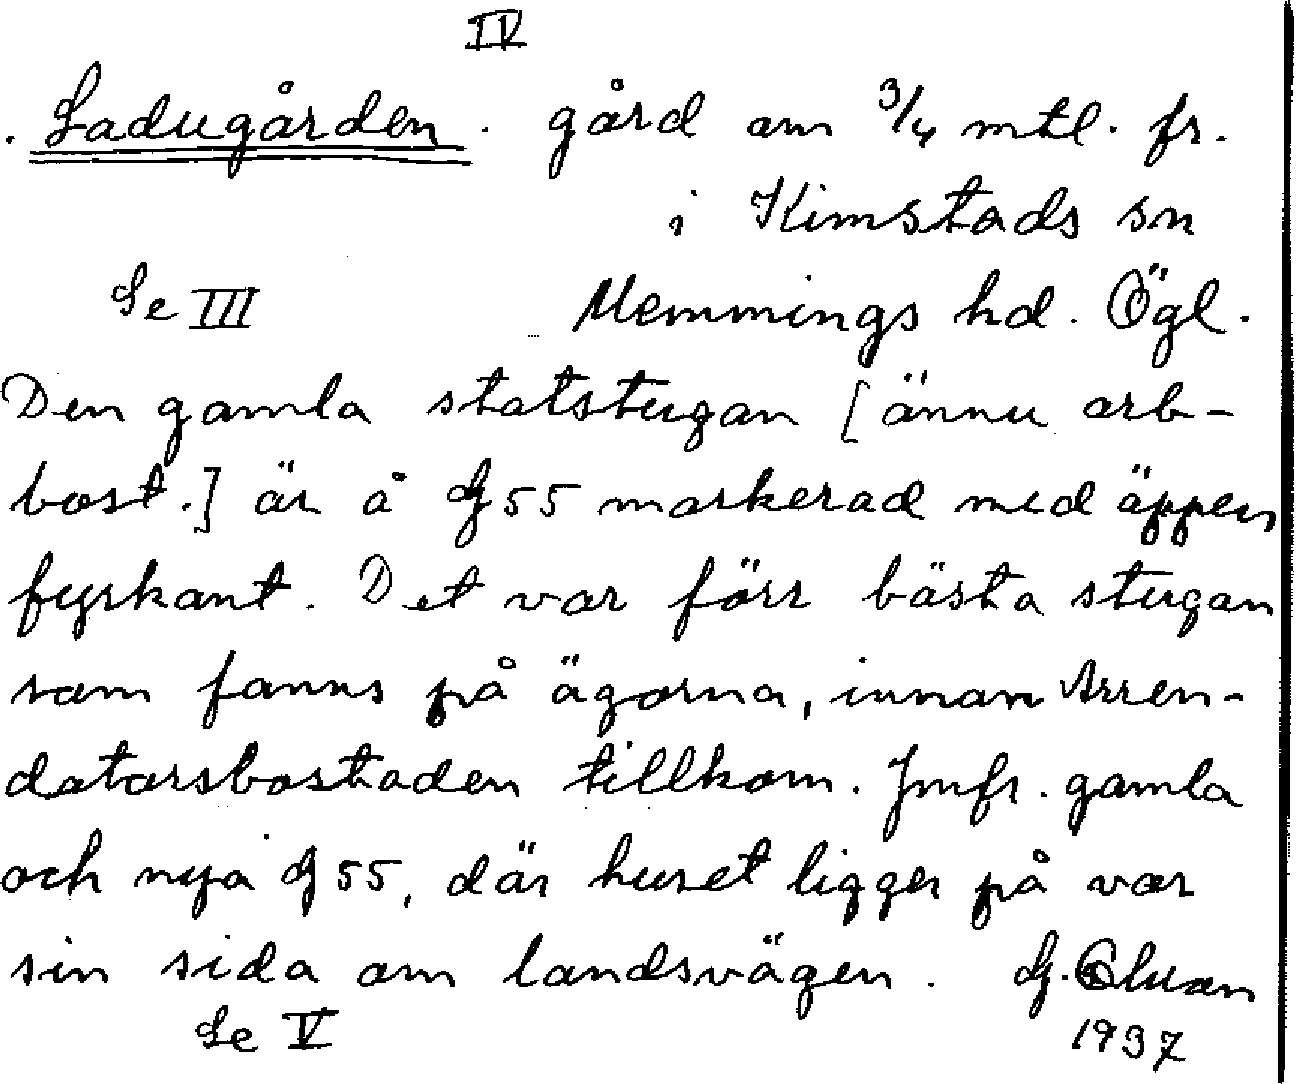 IV
. Ladugården. gård om 3/4 mtl. fr.
i Kimstads sn
Se III Memmings hd. Ögl.
Den gamla statstugan [ännu arb-
bost.] är å G55 markerad med äppen
fyrkant. Det var förr bästa stugan
som fanns på ägorna, innan Arren-
datorsbostaden tillkom. Jmfr. gamla
och nya G55, där huset ligger på var
sin sida om landsvägen. G.
Se V 1937